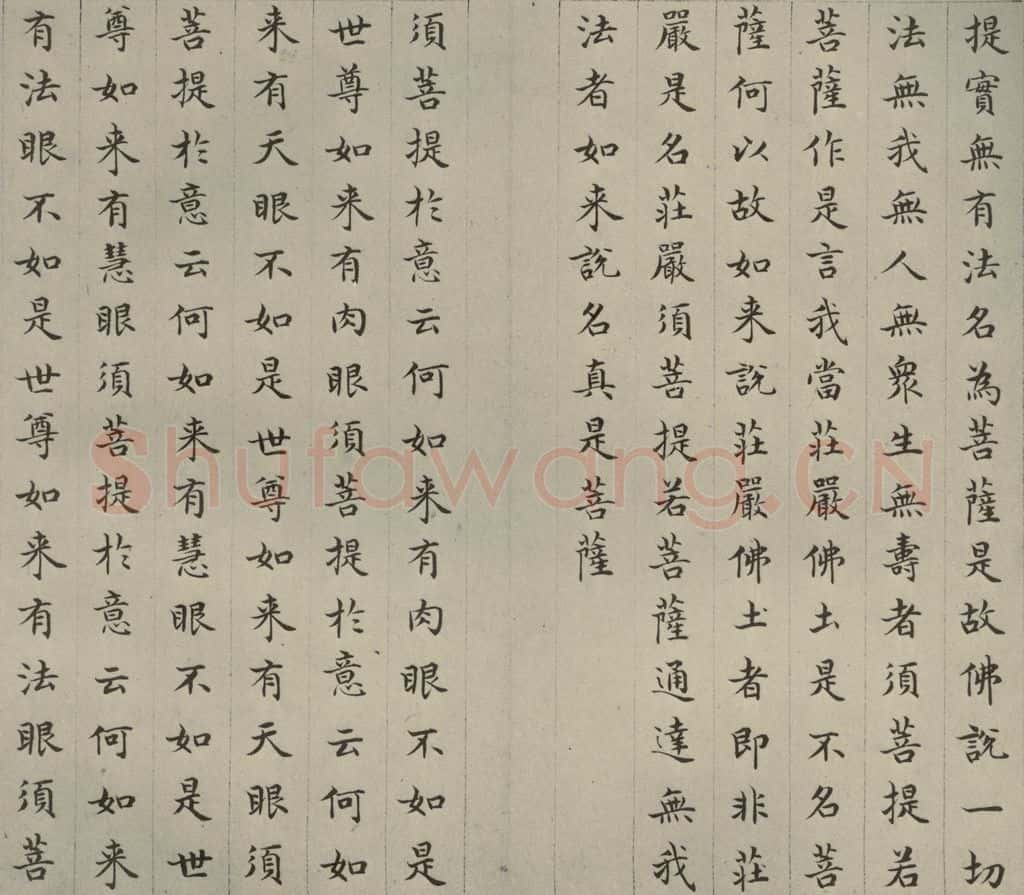 提實無有法名為菩薩是故佛說一切
法無我無人無眾生無壽者須菩提若
菩薩作是言我當莊嚴佛土是不名菩
薩何以故如来說莊嚴佛土者即非莊
嚴是名莊嚴須菩提若菩薩通達無我
法者如来說名真是菩薩
須菩提於意云何如来有肉眼不如是
世尊如来有肉眼須菩提於意云何如
来有天眼不如是世尊如来有天眼須
菩提於意云何如来有慧眼不如是世
尊如来有慧眼須菩提於意云何如来
有法眼不如是世尊如来有法眼須菩
Shufawang.CN